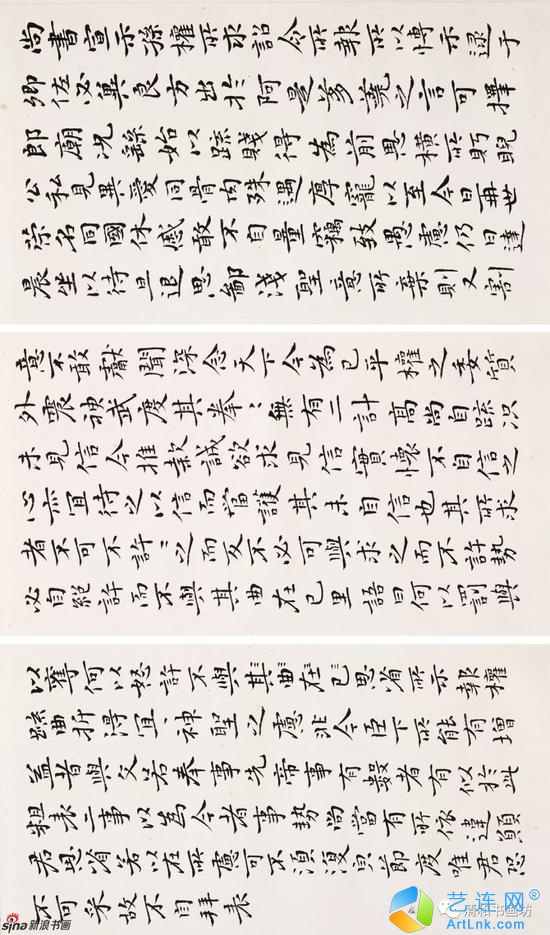 尚書宣示孫權所求詔令所報所以博示逮于
卿佐必冀良方出於阿是芻蕘之言可擇
郎廟況繇始以疏賤得為前恩橫所眄睨
公私見異愛同骨肉殊遇厚寵以至今日再世
榮名同國休慼敢不自量竊致愚慮仍日達
晨坐以待旦退思鄙淺聖意所棄則又割
意不敢獻聞深念天下今為已平權之委質
外震神武度其拳〻無有二計高尚自疏況
未見信今推款誠欲求見信實懷不自信之
心亦宜待之以信而當護其未自信也其所求
者不可不許〻之而反不必可與求之而不許勢
必自絕許而不與其曲在己里語曰何以罰與
以奪何以怒許不與其曲在己思省所示報權
疏曲折得宜〻神聖之慮非今臣下所能有增
益昔與文若奉事先帝事有數者有似於此
粗表二事以為今者事勢尚當有所依違願
君思省若以在所慮可不須復冥節度唯君恐
不可采故不自拜表
sina新浪书画
清和书画坊
艺连网®
ArtLnk.com